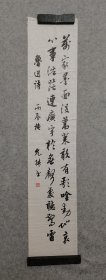 萬家墨面沒蒿萊敢有歌吟動地哀
心事浩茫連廣宇於無聲處聽驚雷
魯迅詩 丙辰